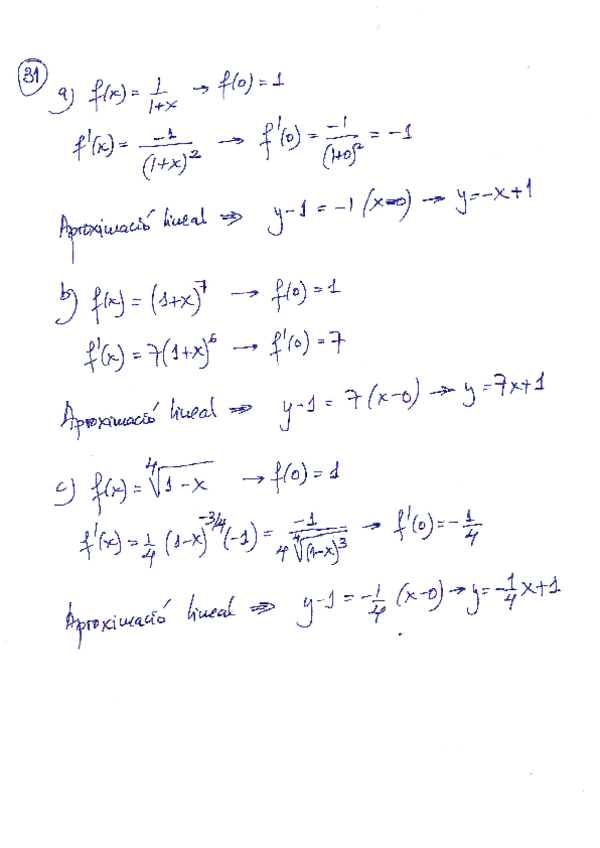 31
a) f(x) = 1/(1+x) → f(0) = 1
f'(x) = -1/(1+x)² → f'(0) = -1/(1+0)² = -1
Aproximació lineal ⇒ y-1 = -1(x-0) → y = -x+1
b) f(x) = (1+x)⁷ → f(0) = 1
f'(x) = 7(1+x)⁶ → f'(0) = 7
Aproximació lineal ⇒ y-1 = 7(x-0) → y = 7x+1
c) f(x) = ⁴√(1-x) → f(0) = 1
f'(x) = 1/4 (1-x)^(-3/4) (-1) = -1/(4 ⁴√(1-x)³) → f'(0) = -1/4
Aproximació lineal ⇒ y-1 = -1/4 (x-0) → y = -1/4 x+1